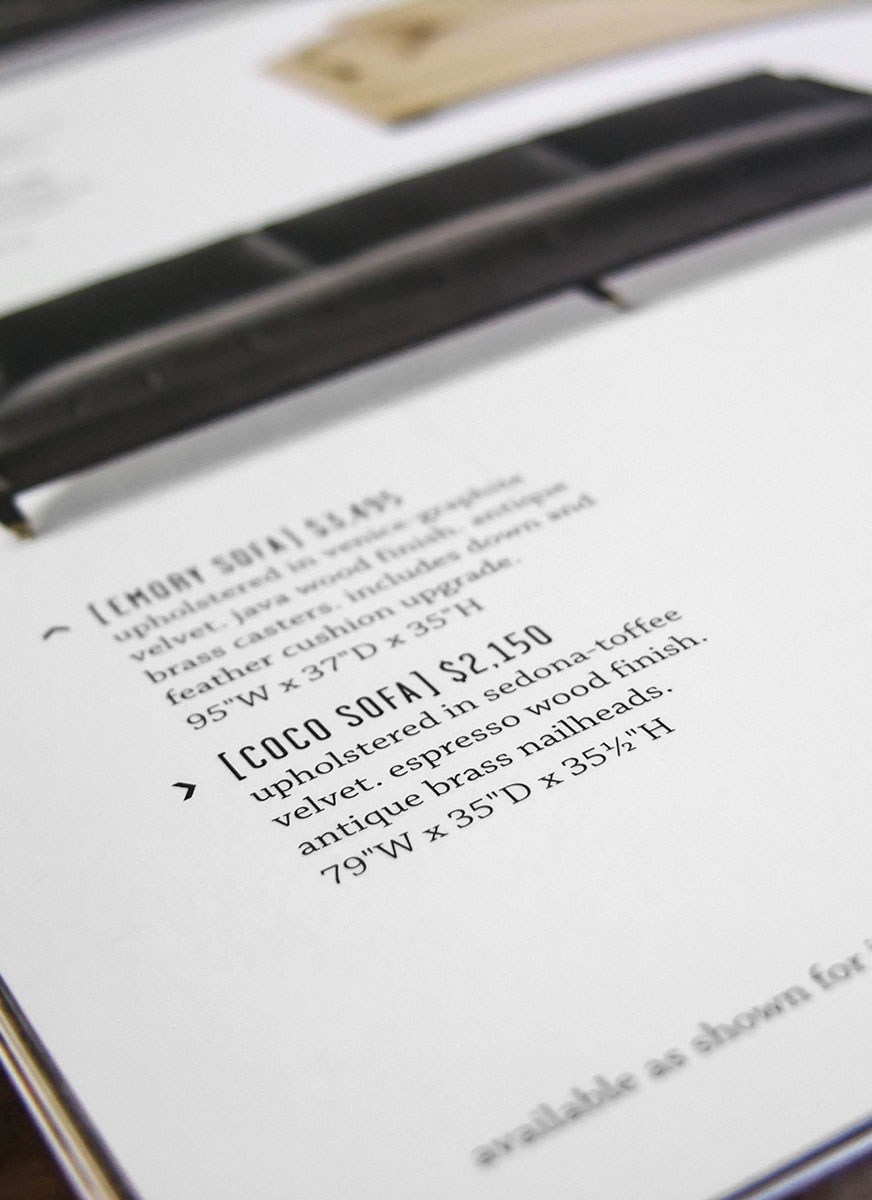 [EMORY SOFA] $3,495
upholstered in venice-graphite
velvet. java wood finish. antique
brass casters. includes down and
feather cushion upgrade.
95"W x 37"D x 35"H
[COCO SOFA] $2,150
upholstered in sedona-toffee
velvet. espresso wood finish.
antique brass nailheads.
79"W x 35"D x 35½"H
available as shown for